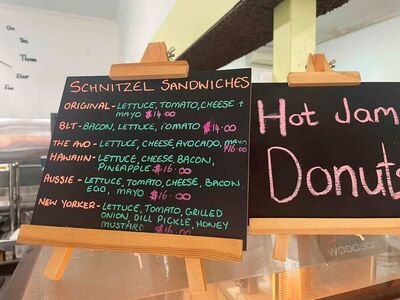 on
Two
Three
Four
SCHNITZEL SANDWICHES
ORIGINAL - LETTUCE, TOMATO, CHEESE +
MAYO $14.00
BLT - BACON, LETTUCE, TOMATO $14.00
THE AVO - LETTUCE, CHEESE, AVOCADO, MAYO
$16.00
HAWAIIN - LETTUCE, CHEESE, BACON,
PINEAPPLE $16.00
AUSSIE - LETTUCE, TOMATO, CHEESE, BACON
EGG, MAYO $16.00
NEW YORKER - LETTUCE, TOMATO, GRILLED
ONION, DILL PICKLE, HONEY
MUSTARD $16.00
Hot Jam
Donuts
woodson